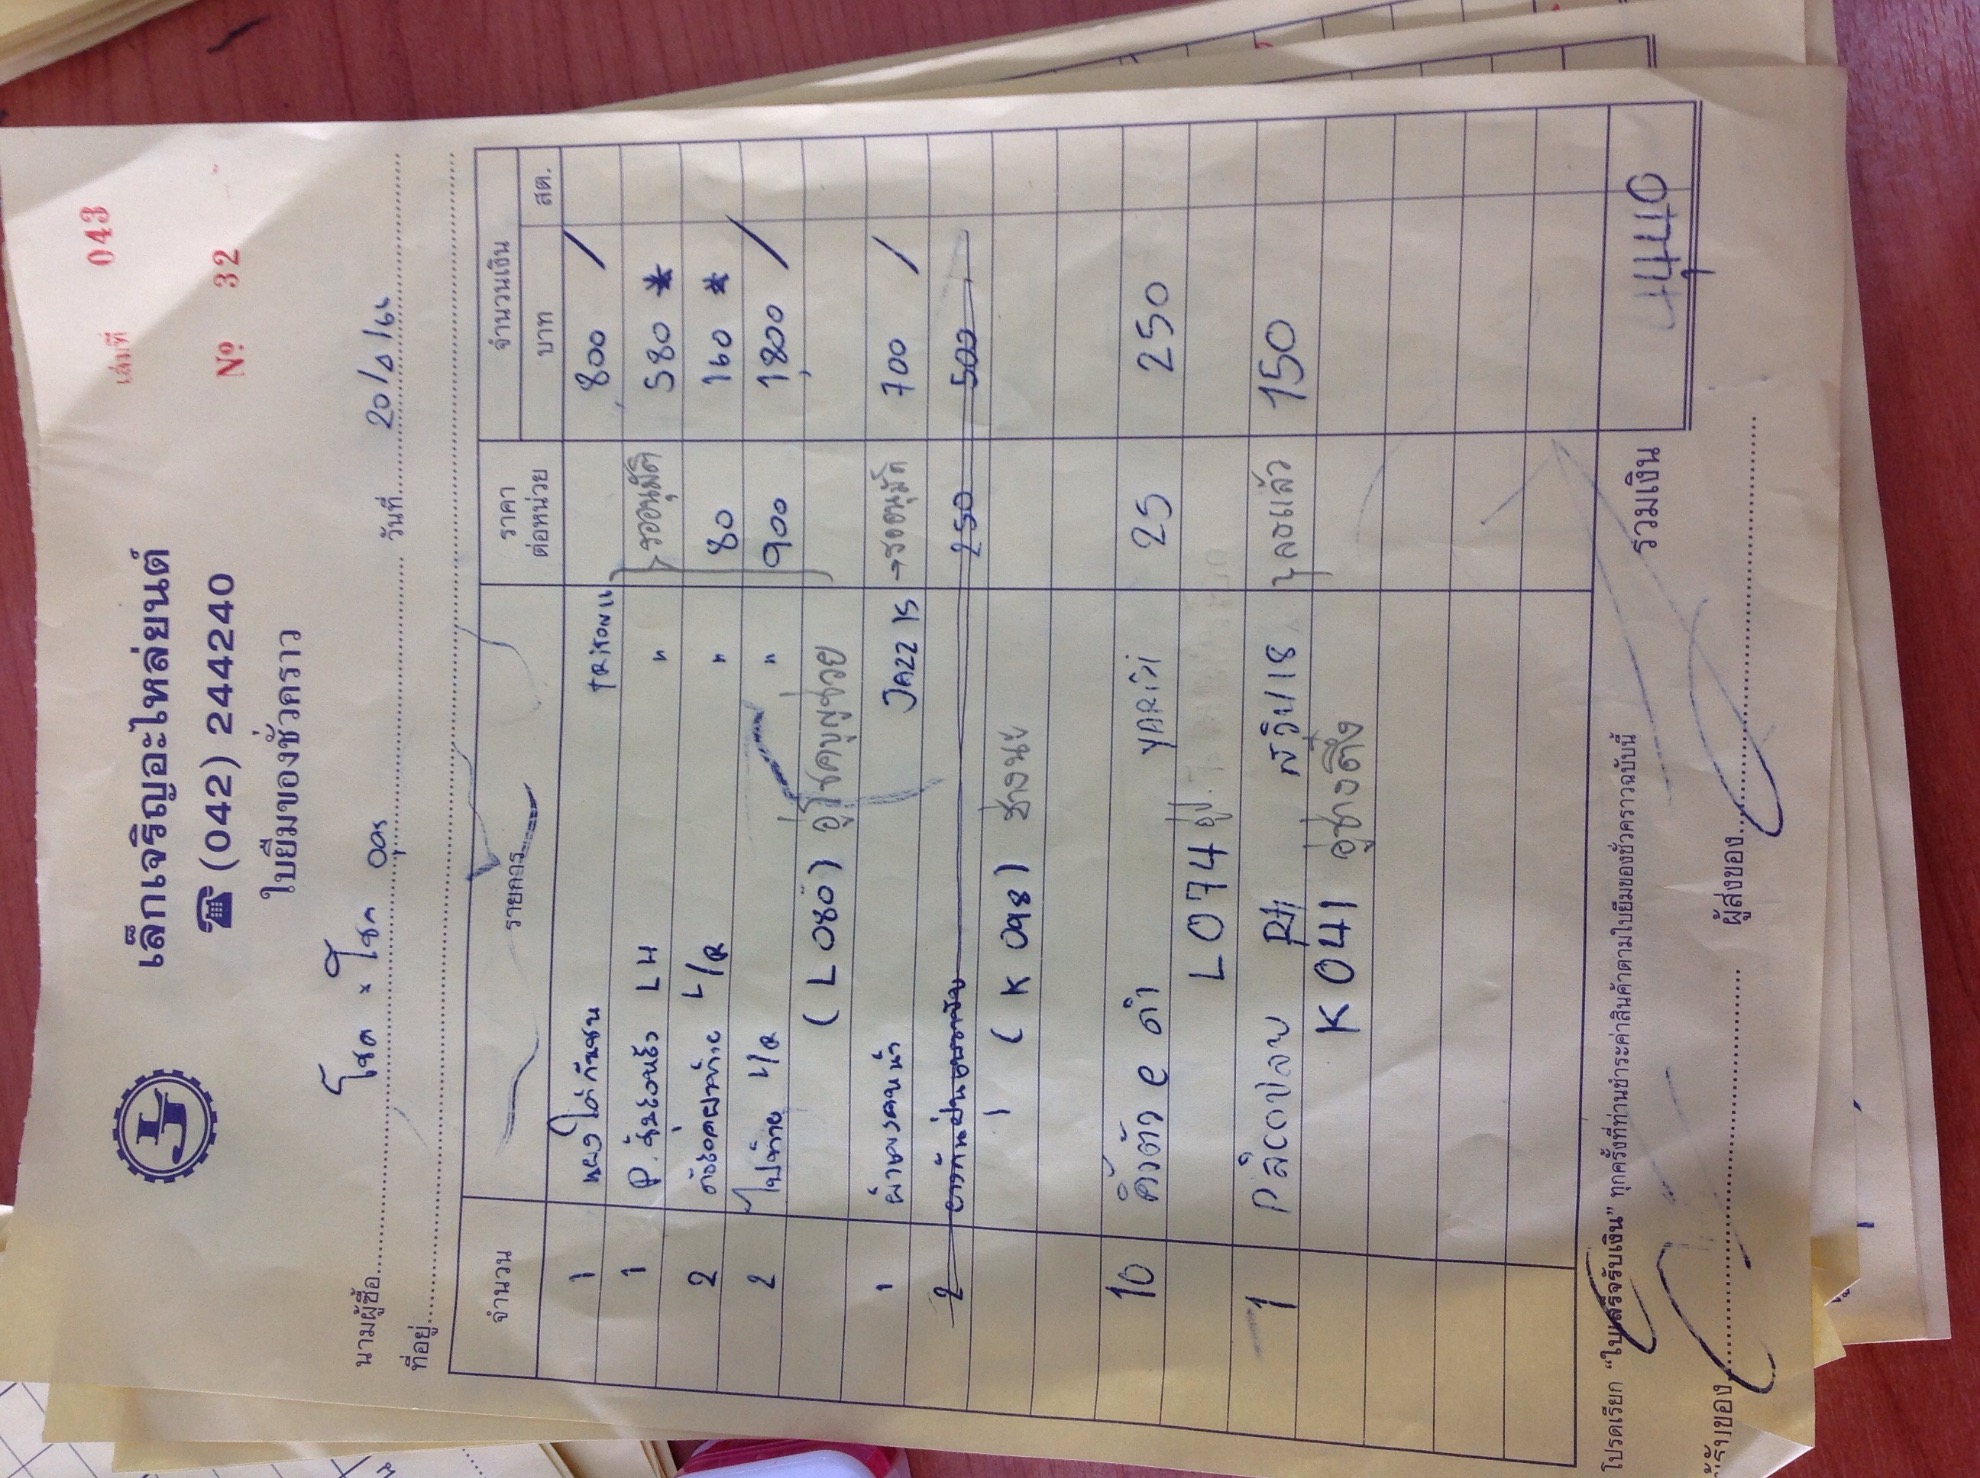 เล่มที่ 043
เล็กเจริญอะไหล่ยนต์
☎ (042) 244240
Nº 32
ใบยืมของชั่วคราว
นามผู้ซื้อ โชค × โชค อุดร วันที่ 20/4/66
ที่อยู่
จำนวน รายการ ราคาต่อหน่วย จำนวนเงิน
บาท สต.
1 แผงใต้กันชน TRITON 800 /
1 LH " รออนุมัติ 580 *
2 L/R " 80 160 *
2 L/R " 900 1,800 /
(L 080) อู่โชคบุญช่วย
1 JAZZ 15 → รออนุมัติ 700 /
2 250 500
(K 098)
10 กิ๊บตัว e ดำ YARIS 25 250
L 074
1 RH สวิฟ 18 150
K 041 อู่ช่างติ่ง
รวมเงิน 4,440
โปรดเรียก "ใบเสร็จรับเงิน" ทุกครั้งที่ท่านชำระค่าสินค้าตามใบยืมของชั่วคราวฉบับนี้
ผู้รับของ ผู้ส่งของ